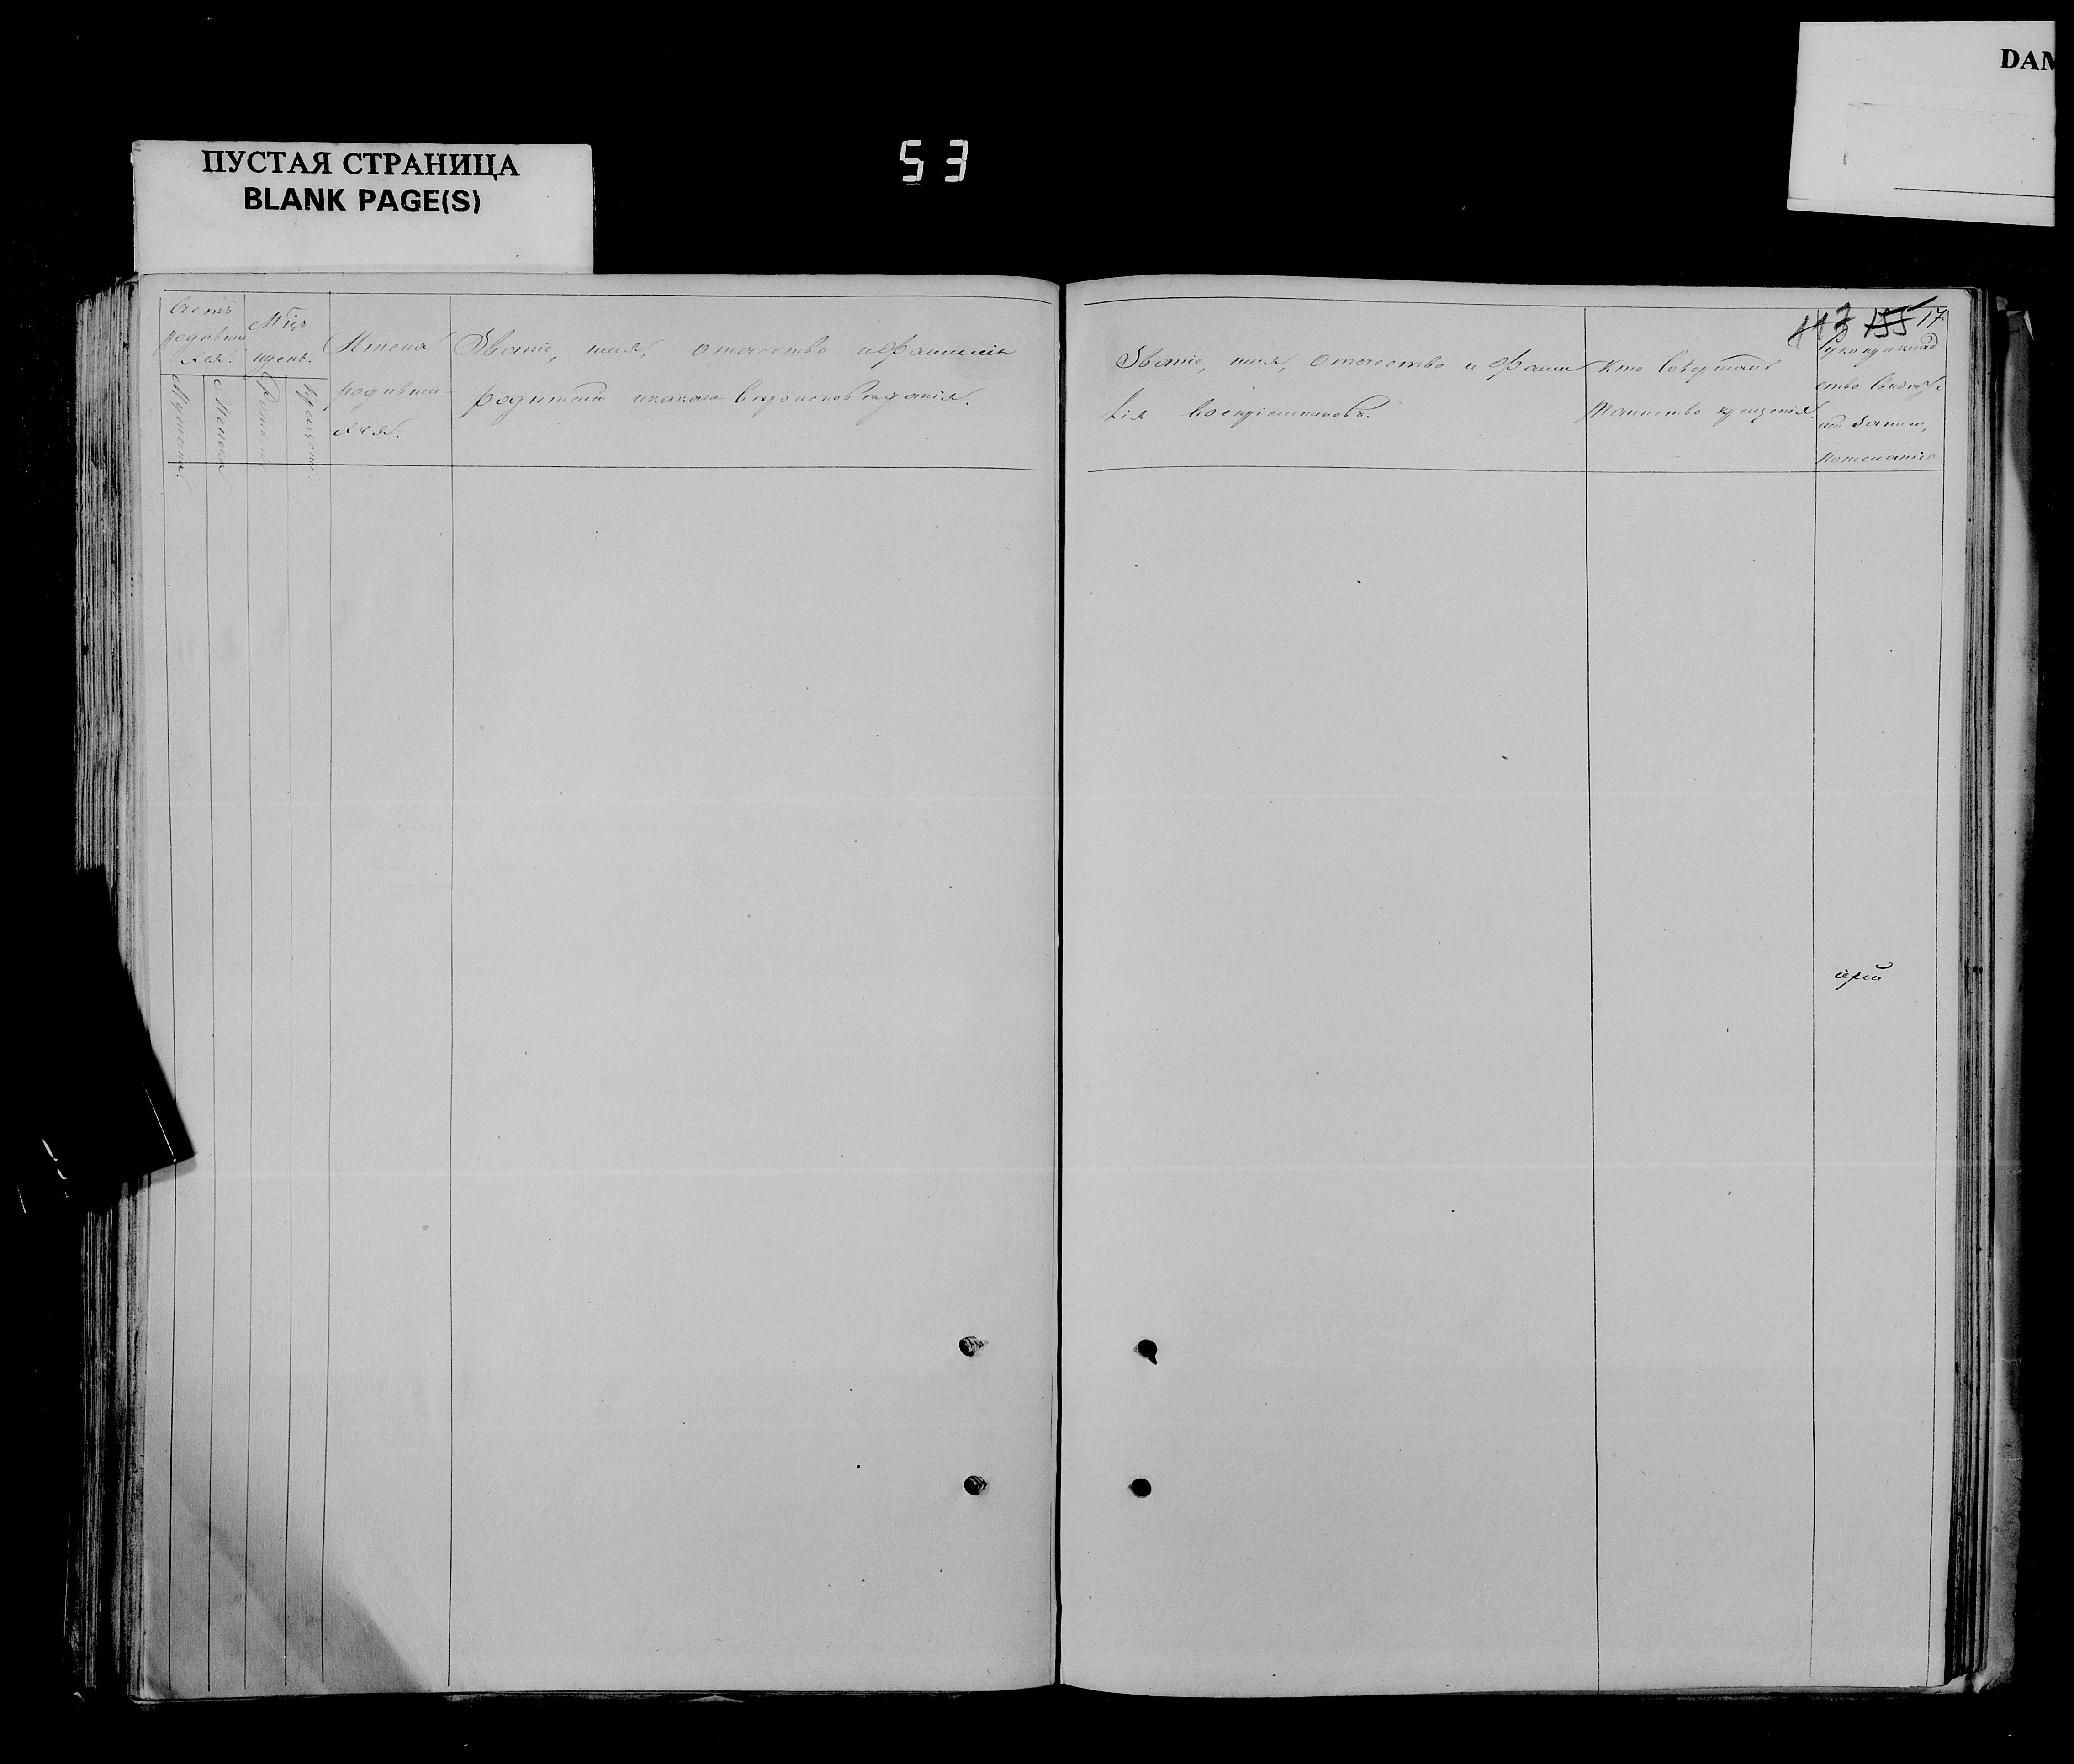 DAM
ПУСТАЯ СТРАНИЦА
BLANK PAGE(S)
53
Счетъ
родивши
хся.
Мужеска.
Женска
Мѣц.
и день.
Рожденія
Крещенія.
Имена
родивши-
хся.
Званіе, имя, отчество и фамилія
родителей и какого вѣроисповѣданія.
Званіе, имя, отчество и фами
лія воспріемниковъ.
Кто совершалъ
таинство крещенія.
117 155 17
Рукоприклад
ство свидѣте
лей записи,
по желанію